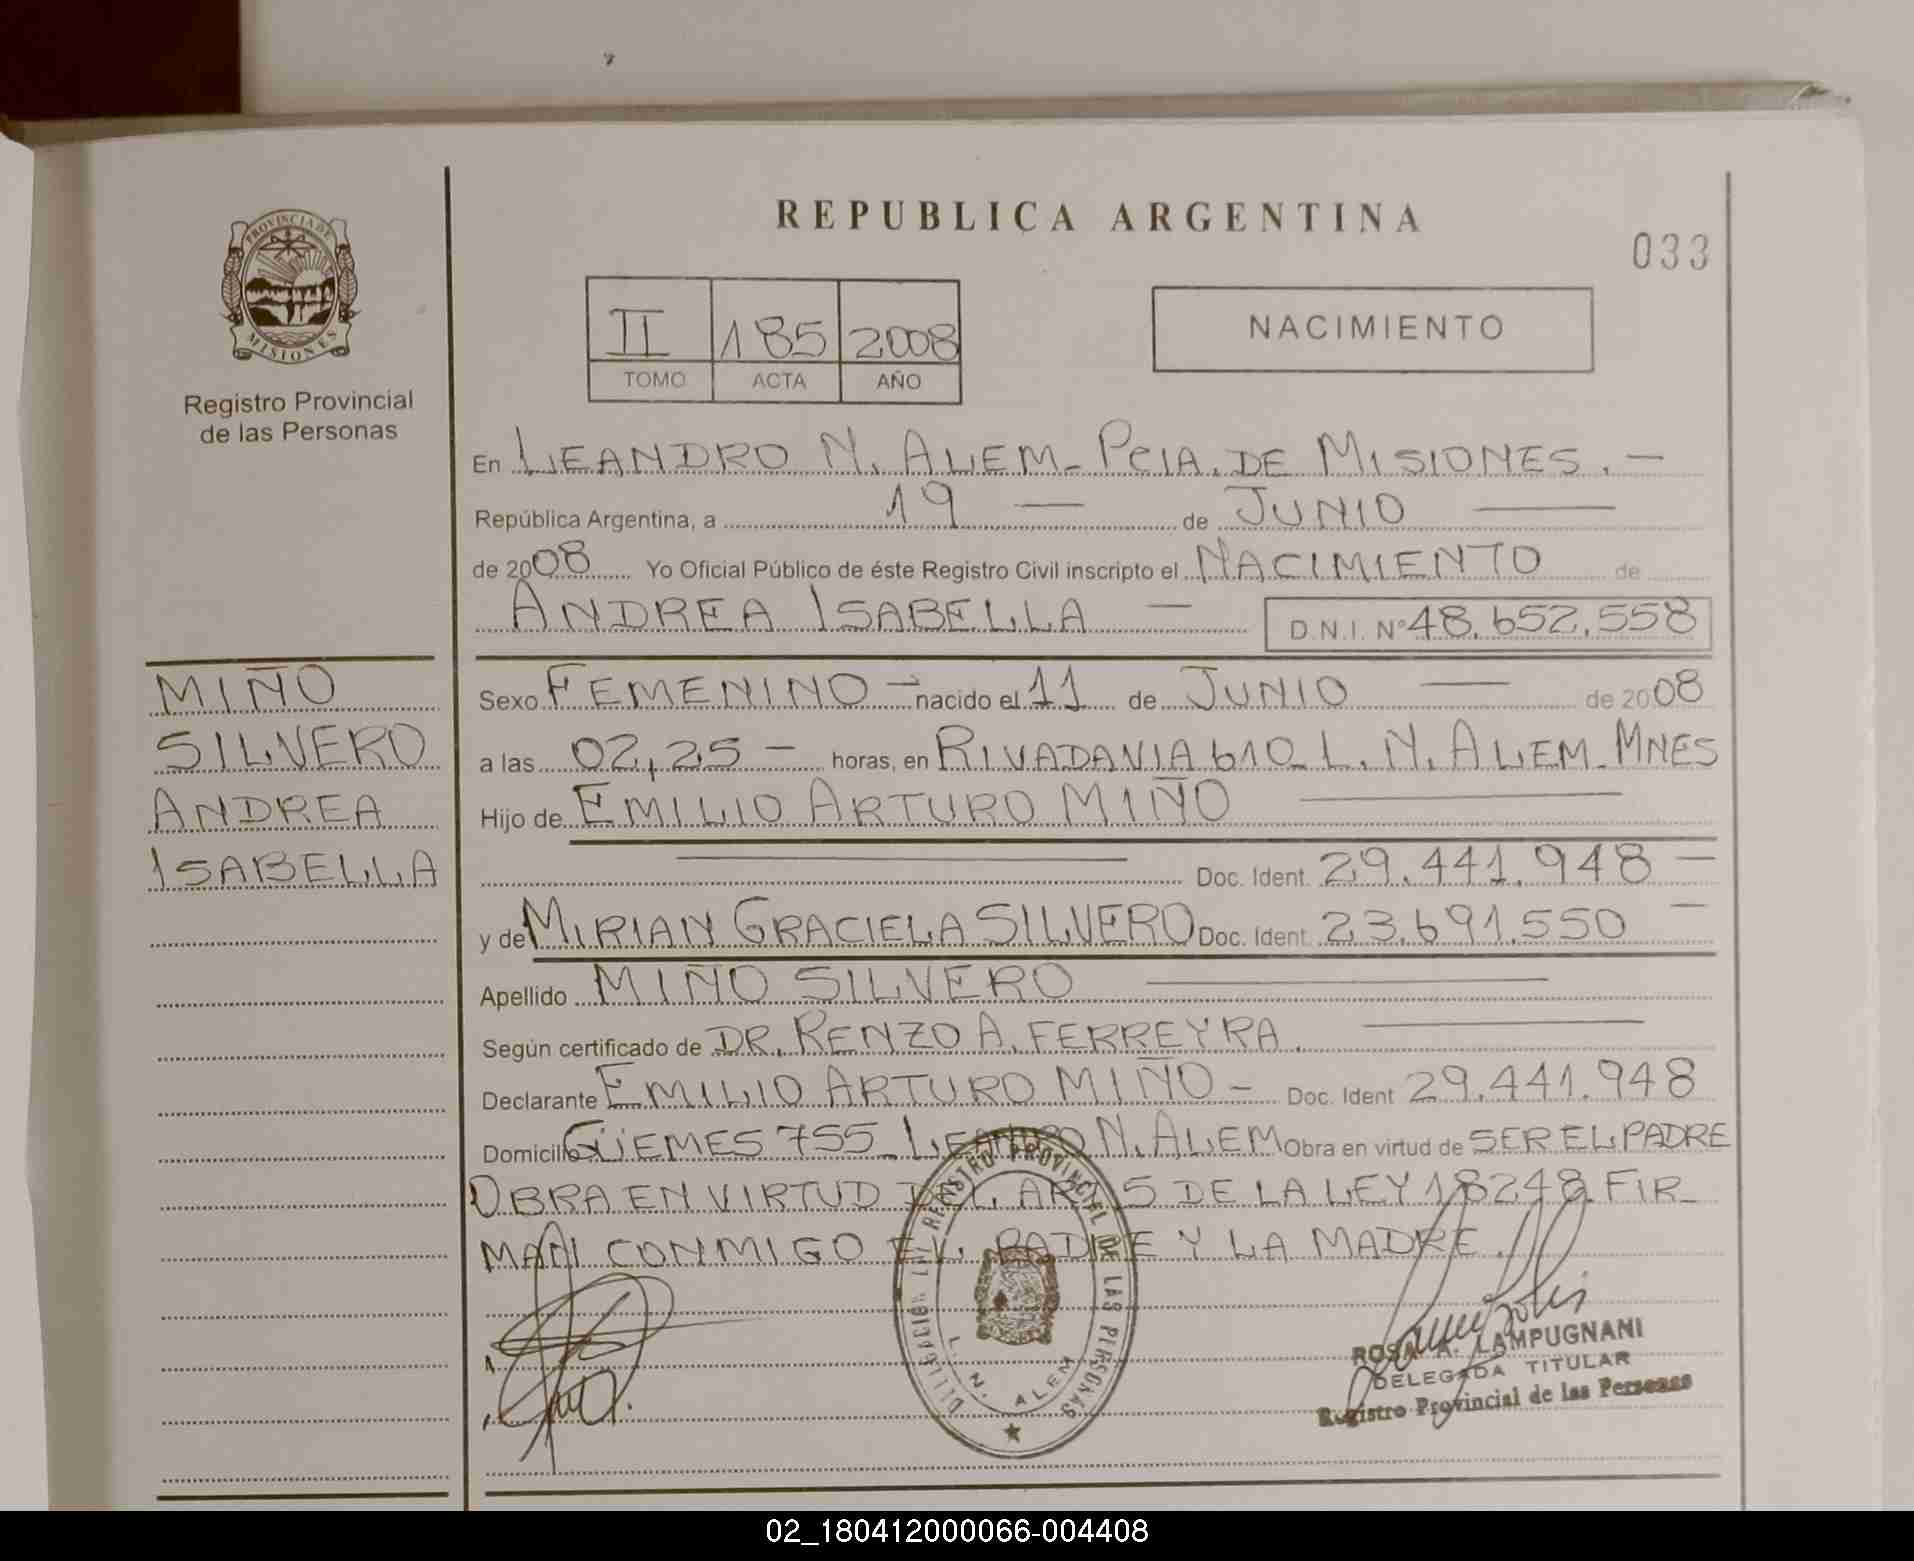 REPUBLICA ARGENTINA
033
PROVINCIA DE
MISIONES
Registro Provincial
de las Personas
II 185 2008
TOMO ACTA AÑO
NACIMIENTO
En LEANDRO N. ALEM - PCIA. DE MISIONES. -
República Argentina, a 19 — de JUNIO —
de 2008 Yo Oficial Público de éste Registro Civil inscripto el NACIMIENTO de
ANDREA ISABELLA — D.N.I. Nº 48.652.558
MIÑO
SILVERO
ANDREA
ISABELLA
Sexo FEMENINO - nacido el 11 de JUNIO — de 2008
a las 02,25 - horas, en RIVADAVIA 610 - L. N. ALEM - MNES
Hijo de EMILIO ARTURO MIÑO —
— Doc. Ident. 29.441.948 —
y de MIRIAN GRACIELA SILVERO Doc. Ident. 23.691.550 —
Apellido MIÑO SILVERO —
Según certificado de DR. RENZO A. FERREYRA. —
Declarante EMILIO ARTURO MIÑO - Doc. Ident 29.441.948
Domicilio GÜEMES 755 - LEANDRO N. ALEM Obra en virtud de SER EL PADRE
OBRA EN VIRTUD DEL ART. 5 DE LA LEY 18248. FIR-
MAN CONMIGO EL PADRE Y LA MADRE.
REGISTRO PROVINCIAL DE LAS PERSONAS
L. N. ALEM
ROSA A. LAMPUGNANI
DELEGADA TITULAR
Registro Provincial de las Personas
02_180412000066-004408